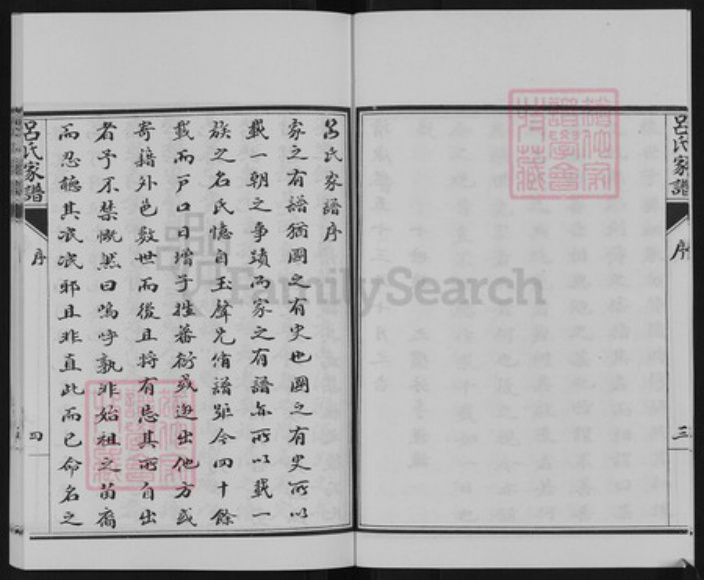 呂氏家譜
序
三
呂氏家譜序
家之有譜猶國之有史也國之有史所以
載一朝之事蹟而家之有譜亦所以載一
族之名氏憶自玉聲兄脩譜距今四十餘
載而戶口日增子姓蕃衍或遷出他方或
寄籍外邑數世而後且將有忘其所自出
者予不禁慨然曰嗚呼孰非始祖之苗裔
而忍聽其泯泯耶且非直此而已命名之
呂氏家譜
序
四
FamilySearch